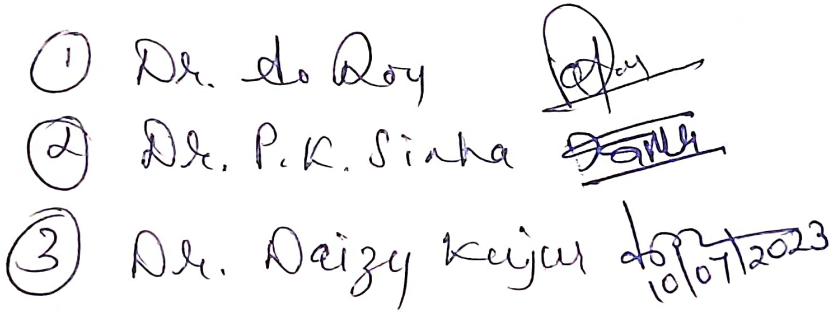 ① Dr. do Roy
② Dr. P.K. Sinha
③ Dr. Daizy Kujur
10/07/2023